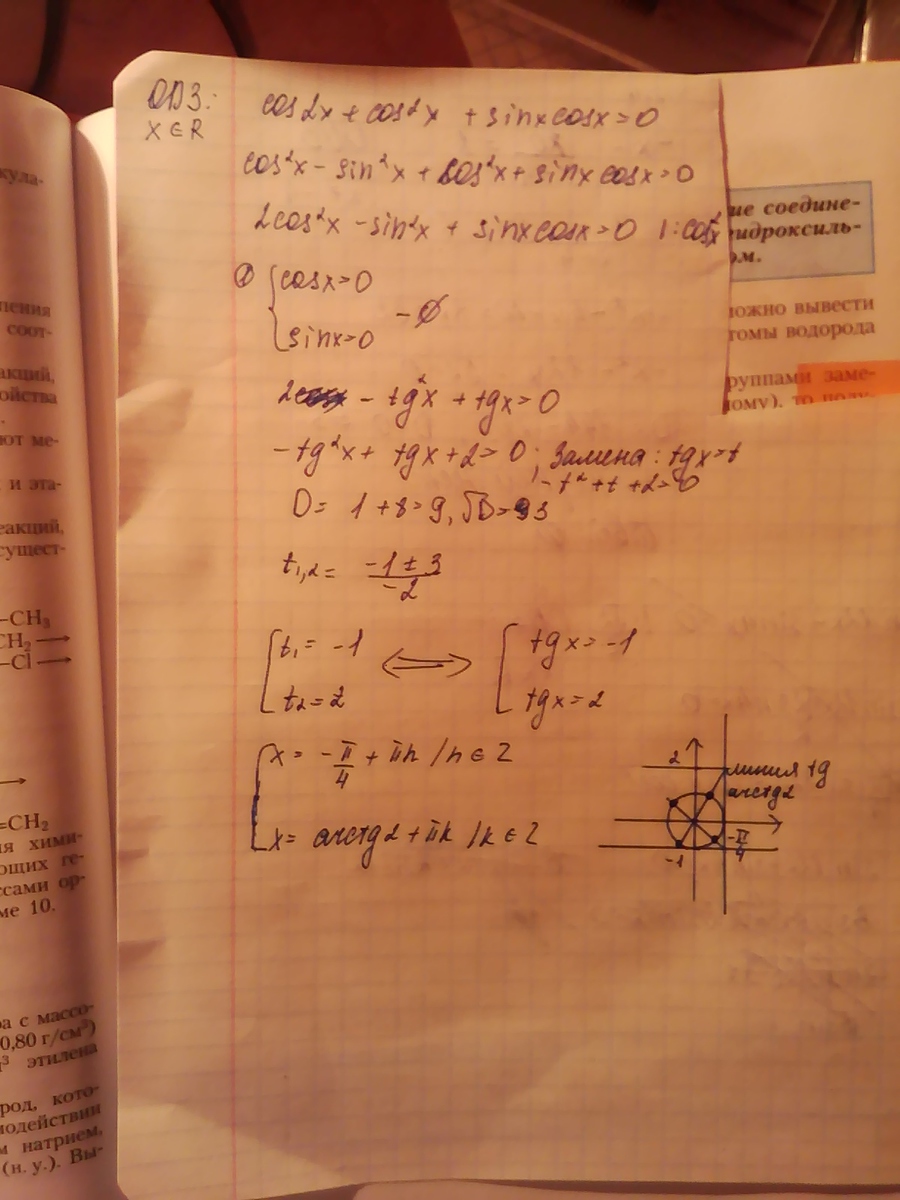 ОДЗ:
x ∈ R
cos2x + cos²x + sinxcosx = 0
cos²x - sin²x + cos²x + sinxcosx = 0
2cos²x - sin²x + sinxcosx = 0 |:cos²x
cosx=0
sinx=0 - ∅
2 - tg²x + tgx = 0
-tg²x + tgx + 2 = 0; Замена: tgx=t
-t² + t + 2 = 0
D = 1 + 8 = 9, √D = 3
t₁,₂ = (-1 ± 3)/-2
t₁ = -1 ⟺ tgx = -1
t₂ = 2 tgx = 2
x = -π/4 + πn / n ∈ Z
x = arctg2 + πk / k ∈ Z
2
линия tg
arctg2
-π/4
-1
кула-
соот-
акций,
ойства
ют ме-
и эта-
еакций,
сущест-
-CH₃
CH₂ →
-Cl →
→
=CH₂
ия хими-
ющих ге-
ссами ор-
ме 10.
ра с массо-
0,80 г/см³)
этилена
род, кото-
модействии
м натрием,
(н. у.). Вы-
ие соедине-
гидроксиль-
ом.
можно вывести
томы водорода
группами заме-